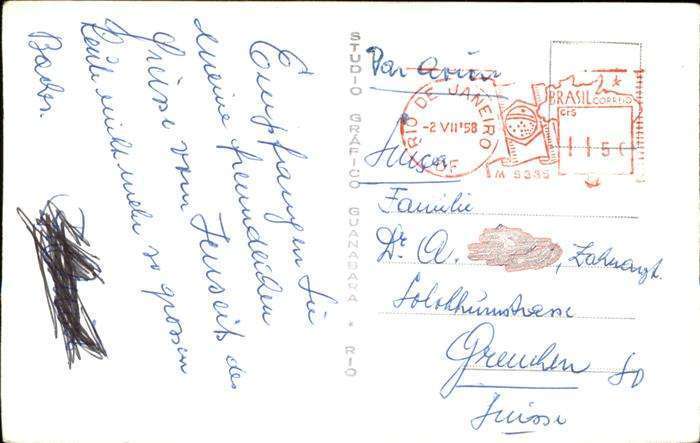 Empfangen Sie
meine freundlichen
Grüsse vom Jenseits des
heute nicht mehr so grossen
Baches.
STUDIO GRÁFICO GUANABARA * RIO
Par avion
RIO DE JANEIRO
-2 VII 58
DF
BRASIL CORREIO
CrS
1150
M 5385
Suiça
Familie
Dr. A. , Zahnarzt.
Solothurnstrasse
Grenchen SO
Suisse